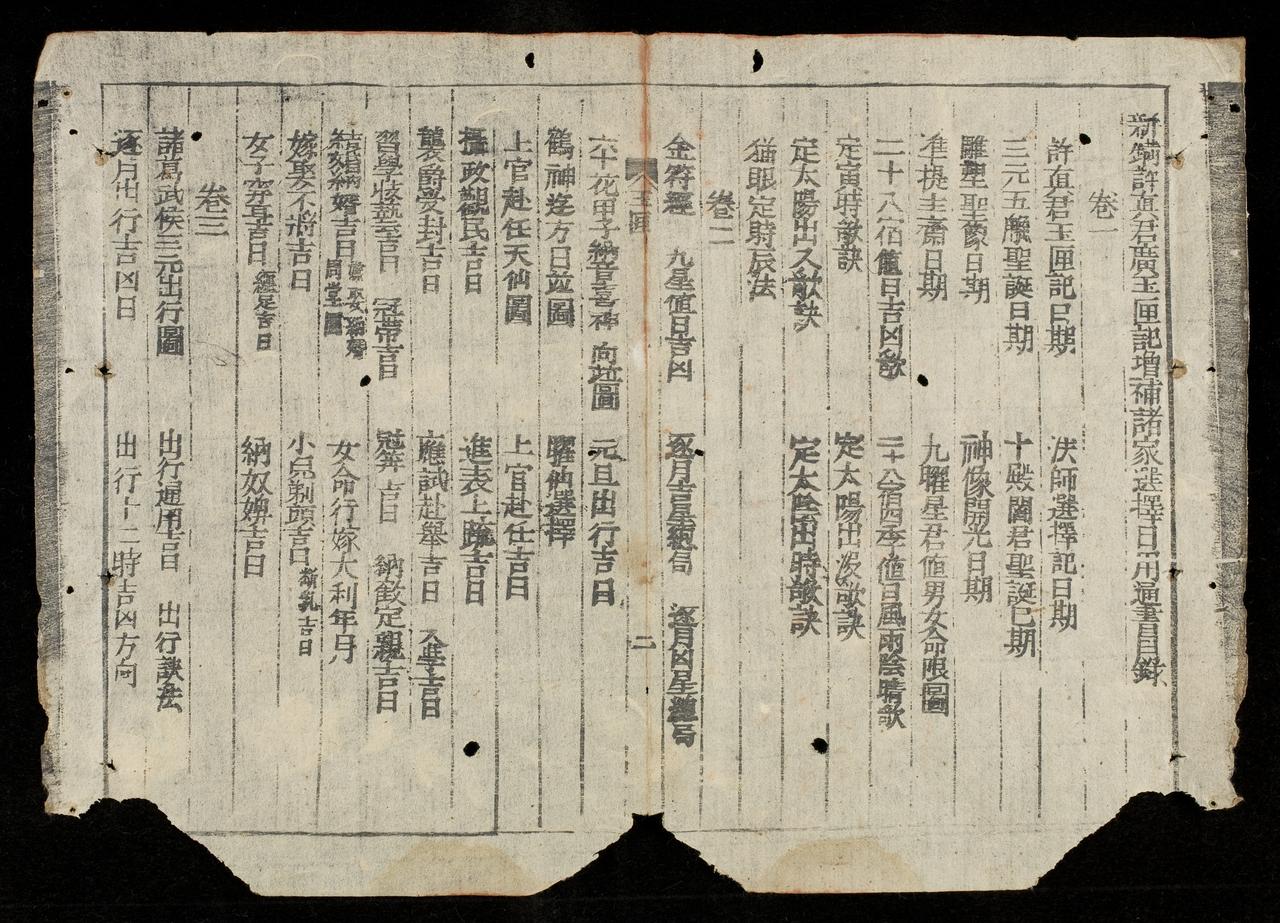 新鐫許真君廣玉匣記增補諸家選擇日用通書目錄
卷一
許真君玉匣記日期 法師選擇記日期
三元五臘聖誕日期 十殿閻君聖誕日期
雕塑聖像日期 神像開光日期
准提主齋日期 九曜星君值男女命限圖
二十八宿值日吉凶歌 二十八宿四季值日風雨陰晴歌
定寅時歌訣 定太陽出沒歌訣
定太陽出入歌訣 定太陰出時歌訣
猫眼定時辰法
卷二
金符經 九星值日吉凶 逐月吉星總局 逐月凶星總局
玉匣 二
六十花甲子納音喜神方向並圖 元旦出行吉日
鶴神迄方日並圖 曜仙選擇
上官赴任天仙圖 上官赴任吉日
攝政觀民吉日 進表上疏吉日
襲爵受封吉日 應試赴舉吉日 入學吉日
習學技藝吉日 冠帶吉日 冠笄吉日 納釵定親吉日
結婚納婿吉日 嫁娶納婿周堂圖 女命行嫁大利年月
嫁娶不將吉日 小兒剃頭吉日 斷乳吉日
女子穿耳吉日 纏足吉日 納奴婢吉日
卷三
諸葛武侯三元出行圖 出行通用吉日 出行訣法
逐月出行吉凶日 出行十二時吉凶方向